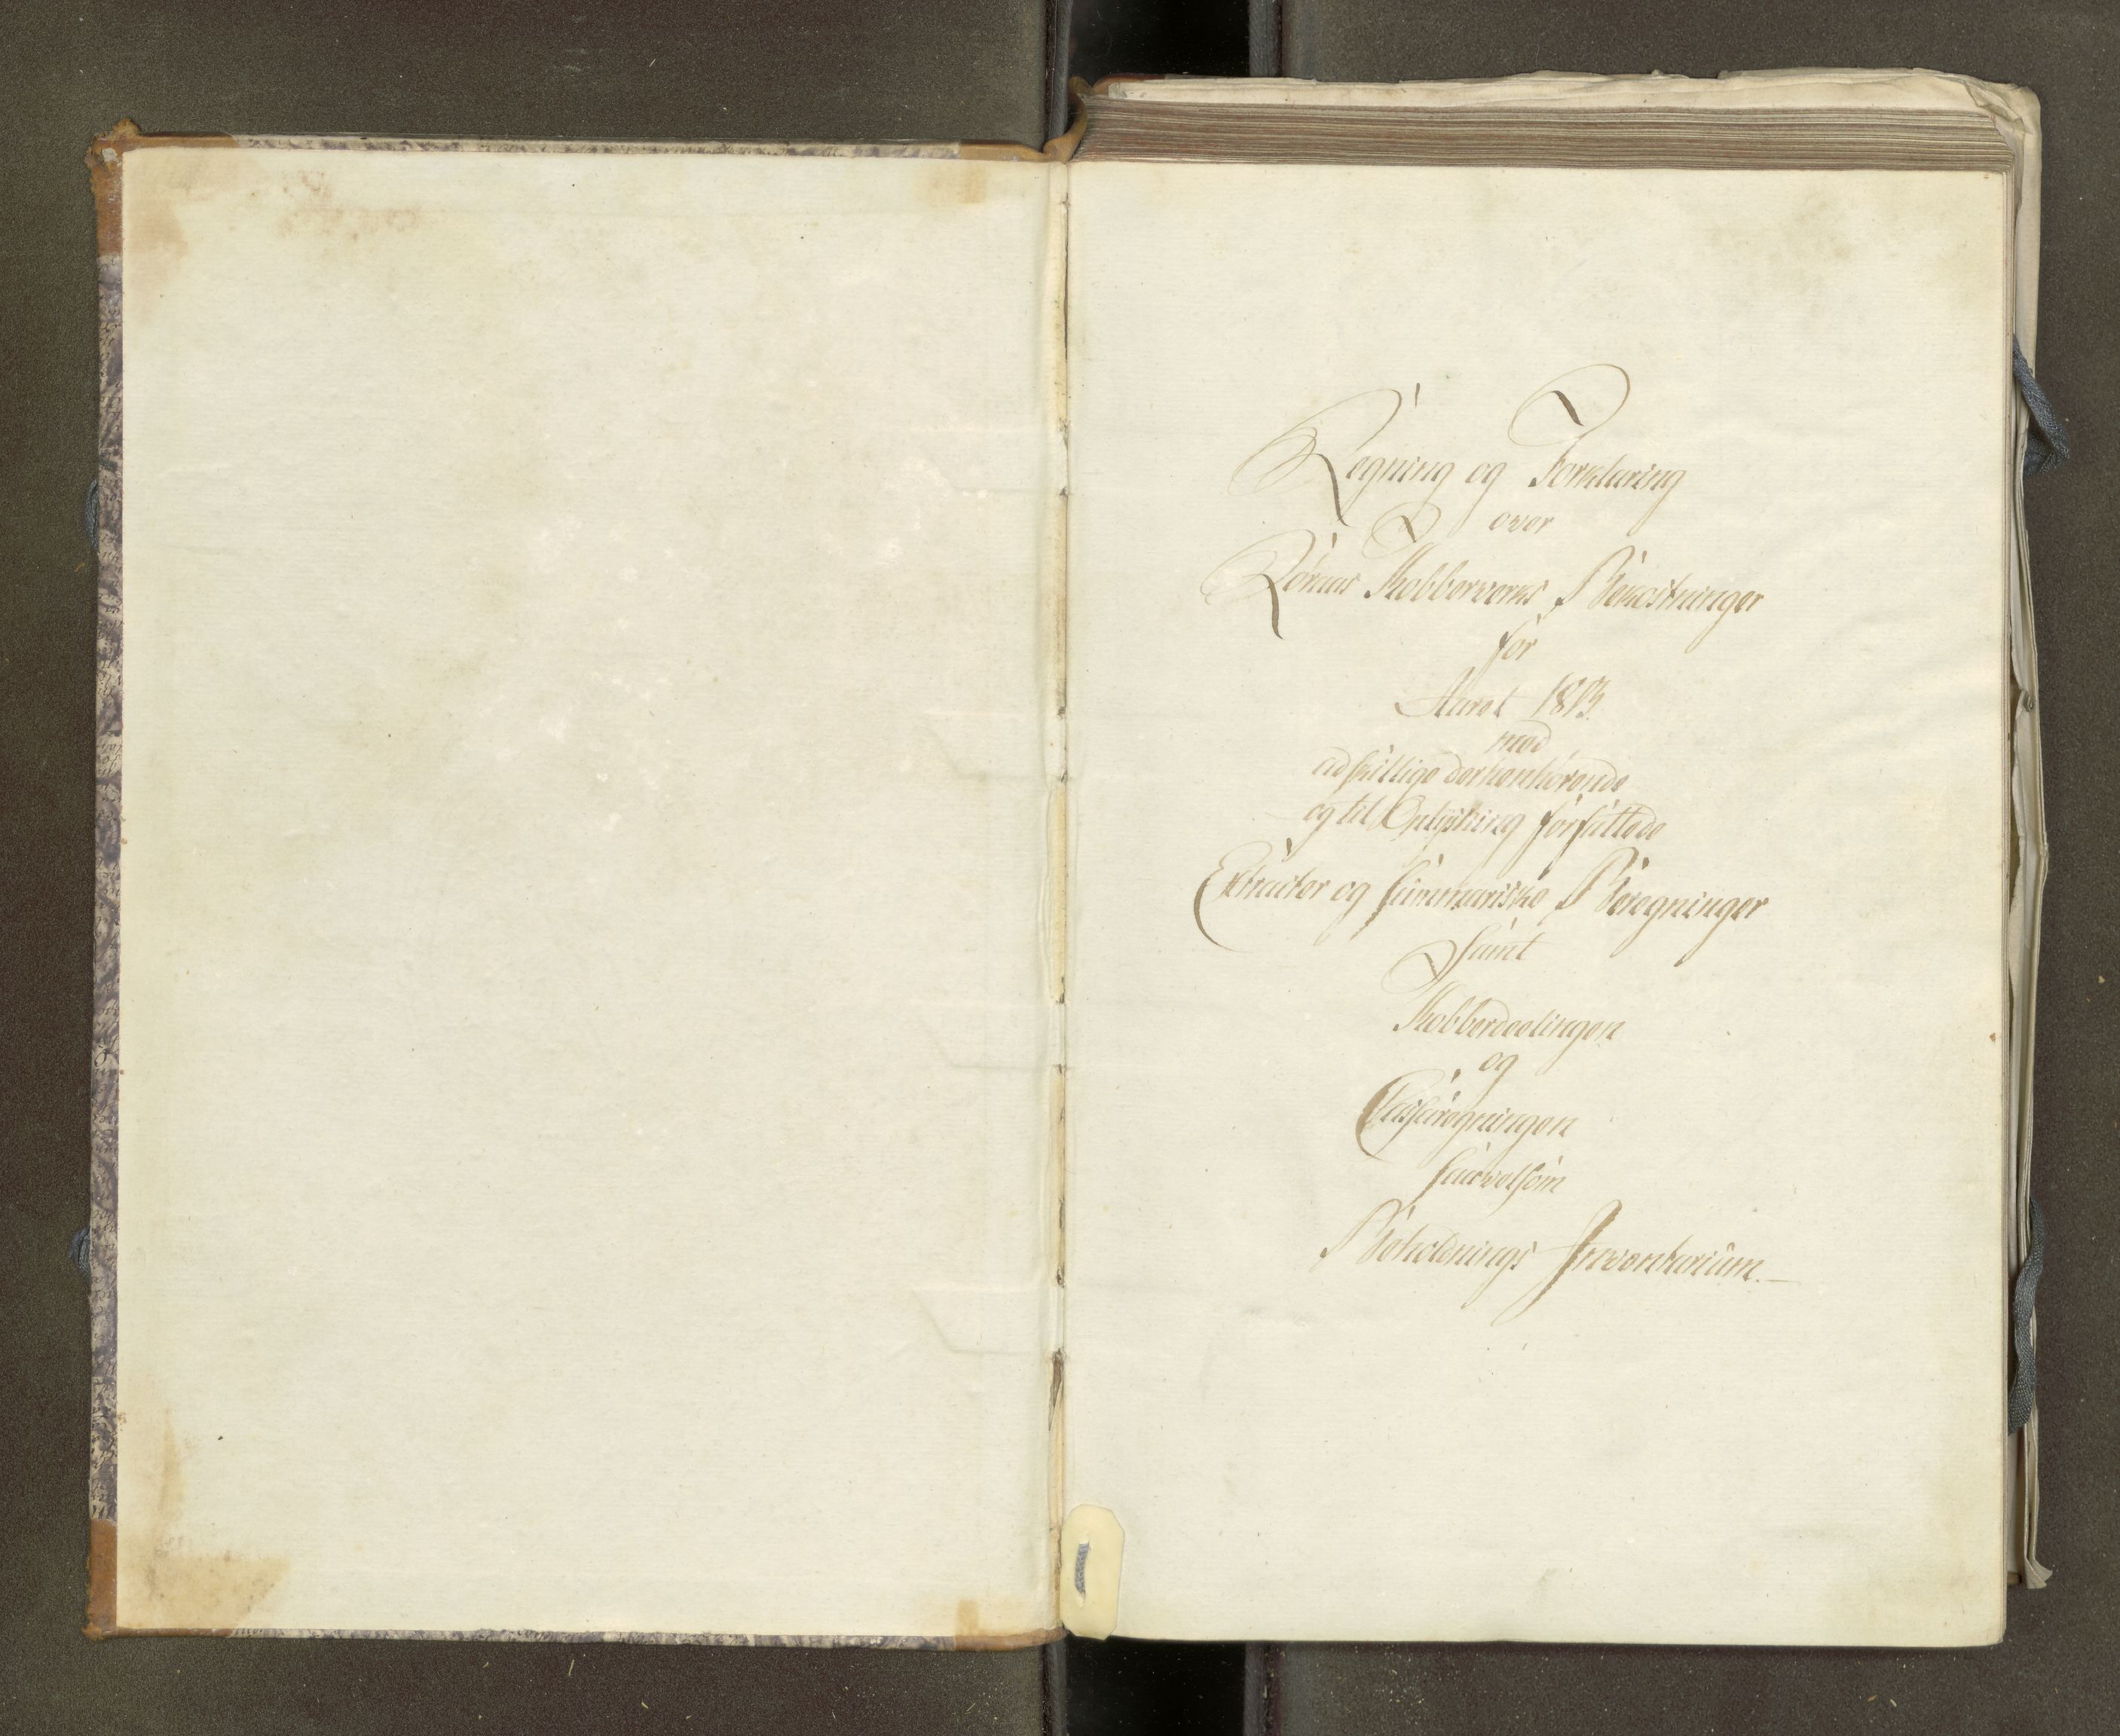 Regning og Forklaring
over
Röraas Kobberverks Bekostninger
for
Aaret 1813.
med
adskillige derhenhörende
og til Oplysning forfattede
Extracter og summariske Beregninger
samt
Kobberdeelingen
og
Cassaregningen
saavelsom
Beholdnings Inventarium.